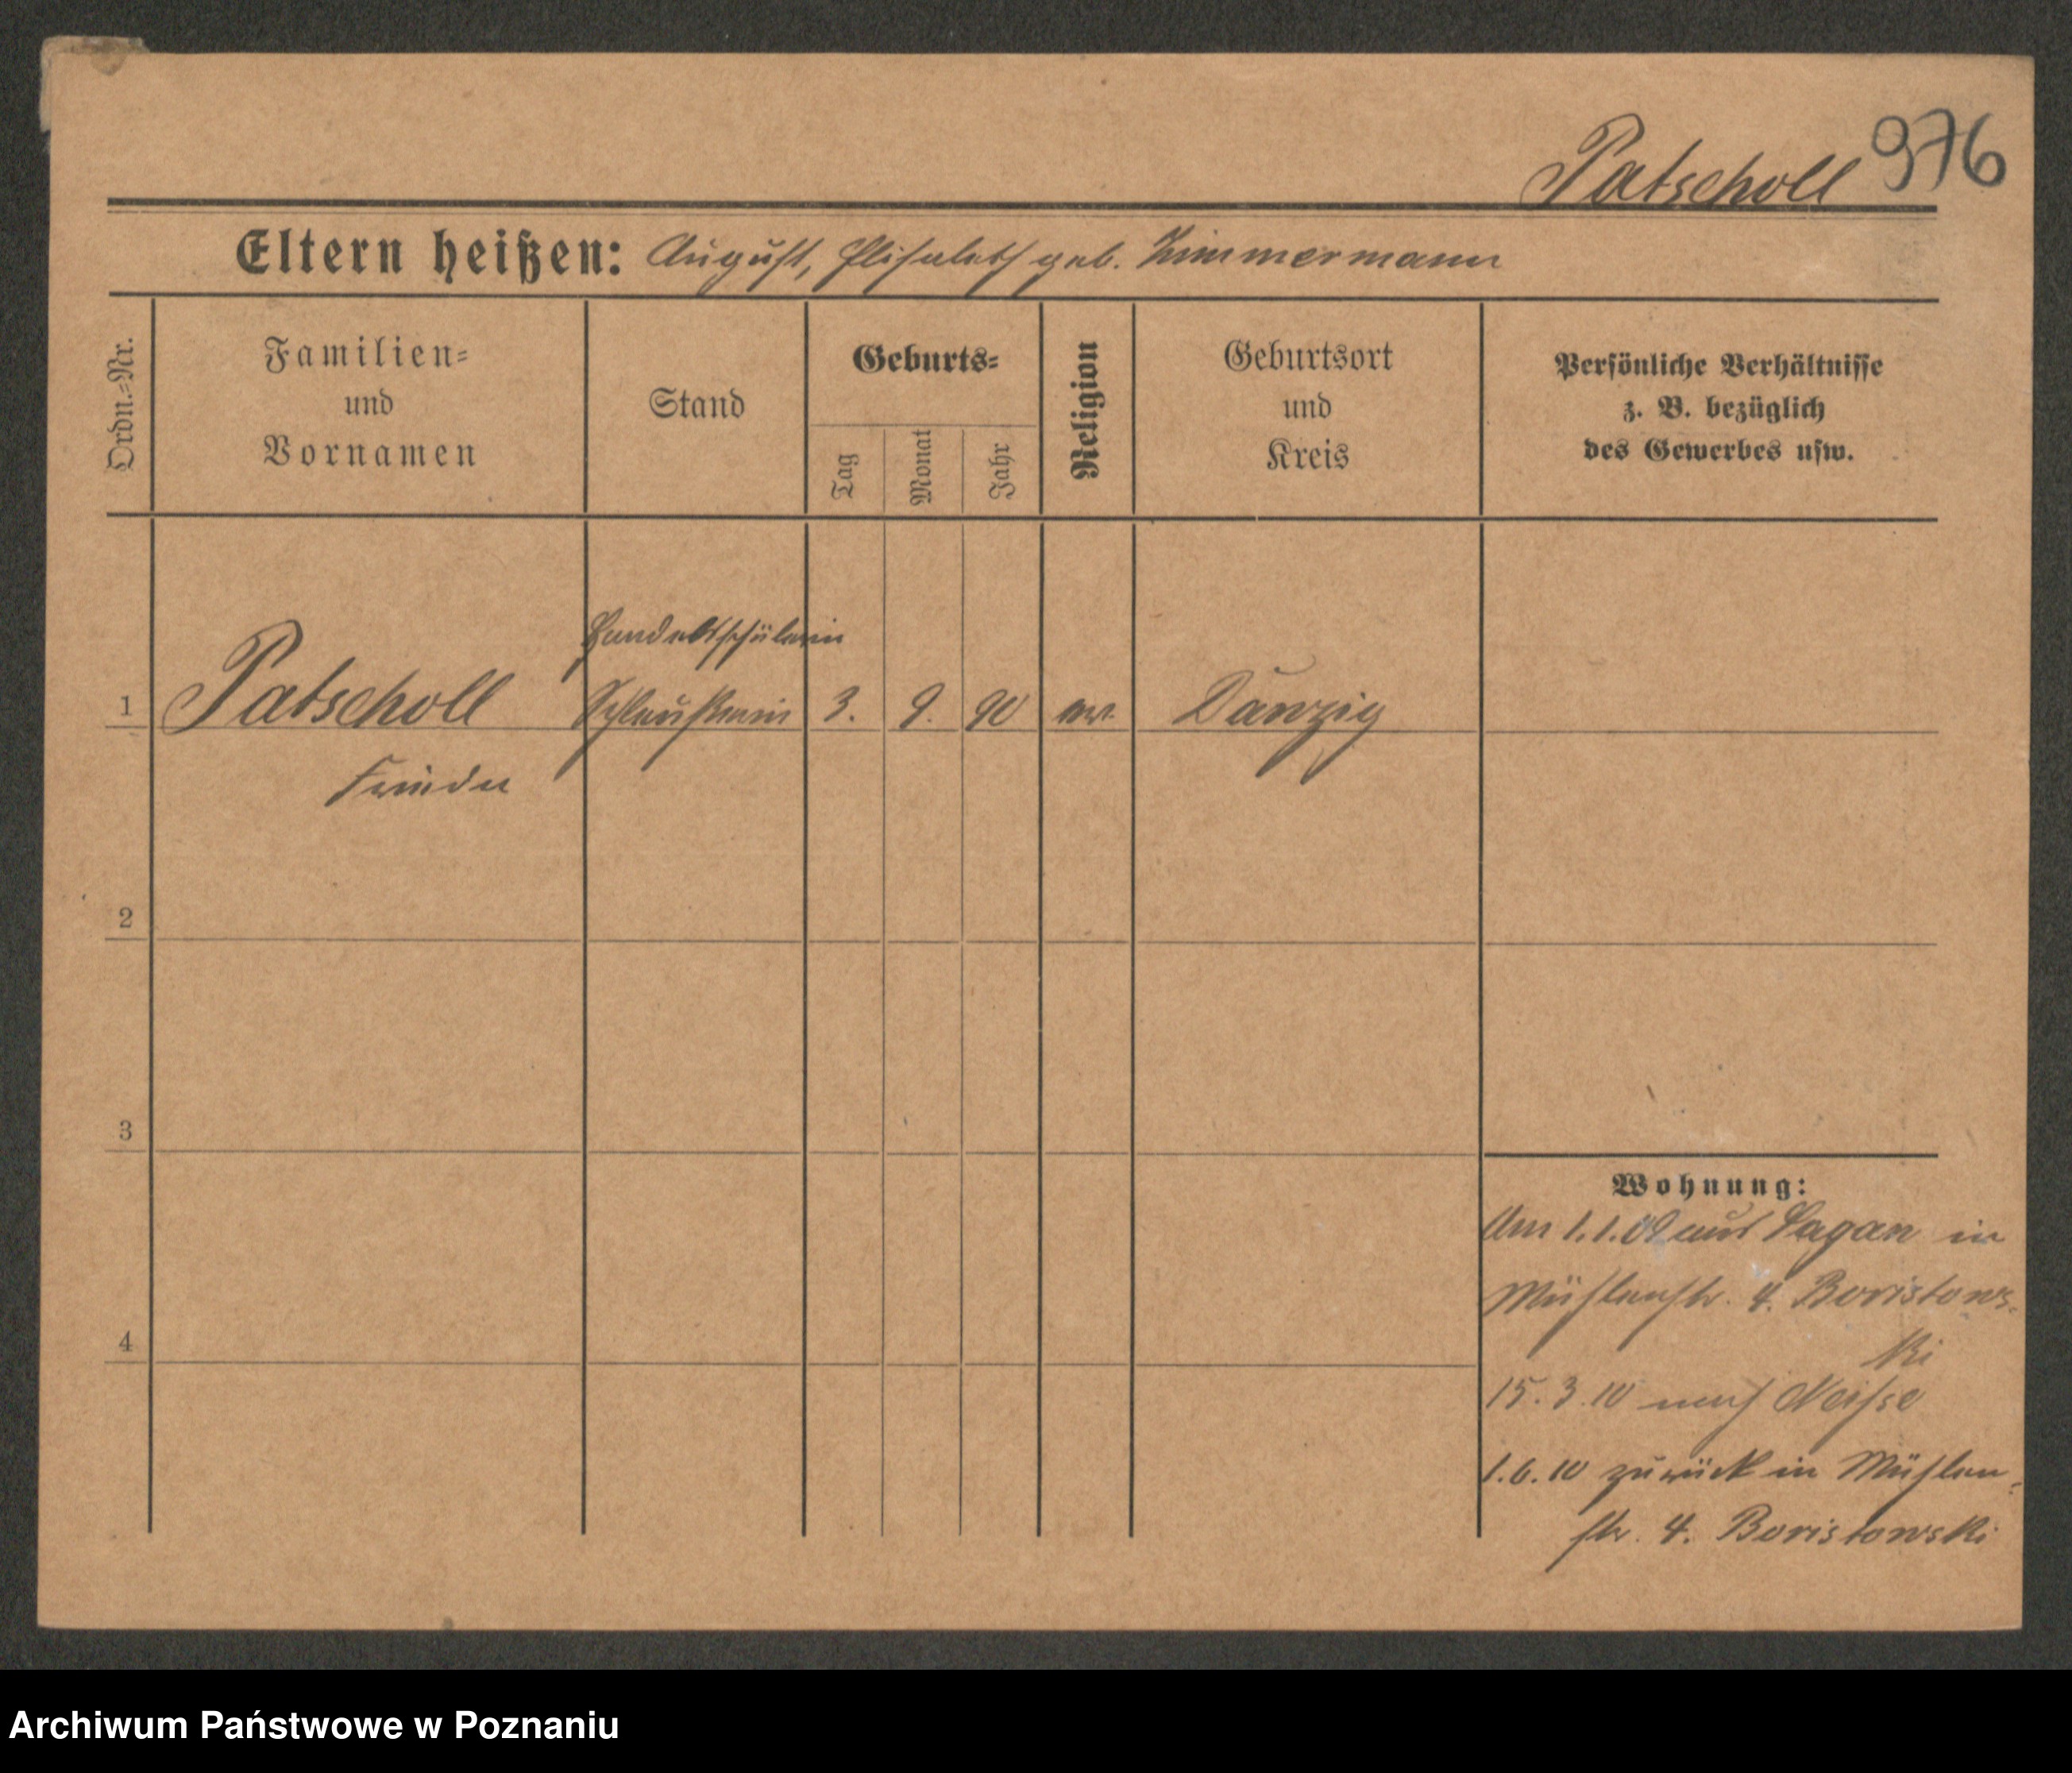 Patscholl 976
Eltern heißen: August, Elisabeth geb. Zimmermann
Ordn.-Nr.
Familien-
und
Vornamen
Stand
Geburts-
Tag
Monat
Jahr
Religion
Geburtsort
und
Kreis
Persönliche Verhältnisse
z. B. bezüglich
des Gewerbes usw.
Handelsschülerin
1 Patscholl 3. 9. 90 ev. Danzig
Frieda
2
3
4
Wohnung:
Am 1.1.09 aus Sagan in
Mühlenstr. 4. Boristows-
ki
15.3.10 nach Neisse
1.6.10 zurück in Mühlen-
str. 4. Boristowski
Archiwum Państwowe w Poznaniu